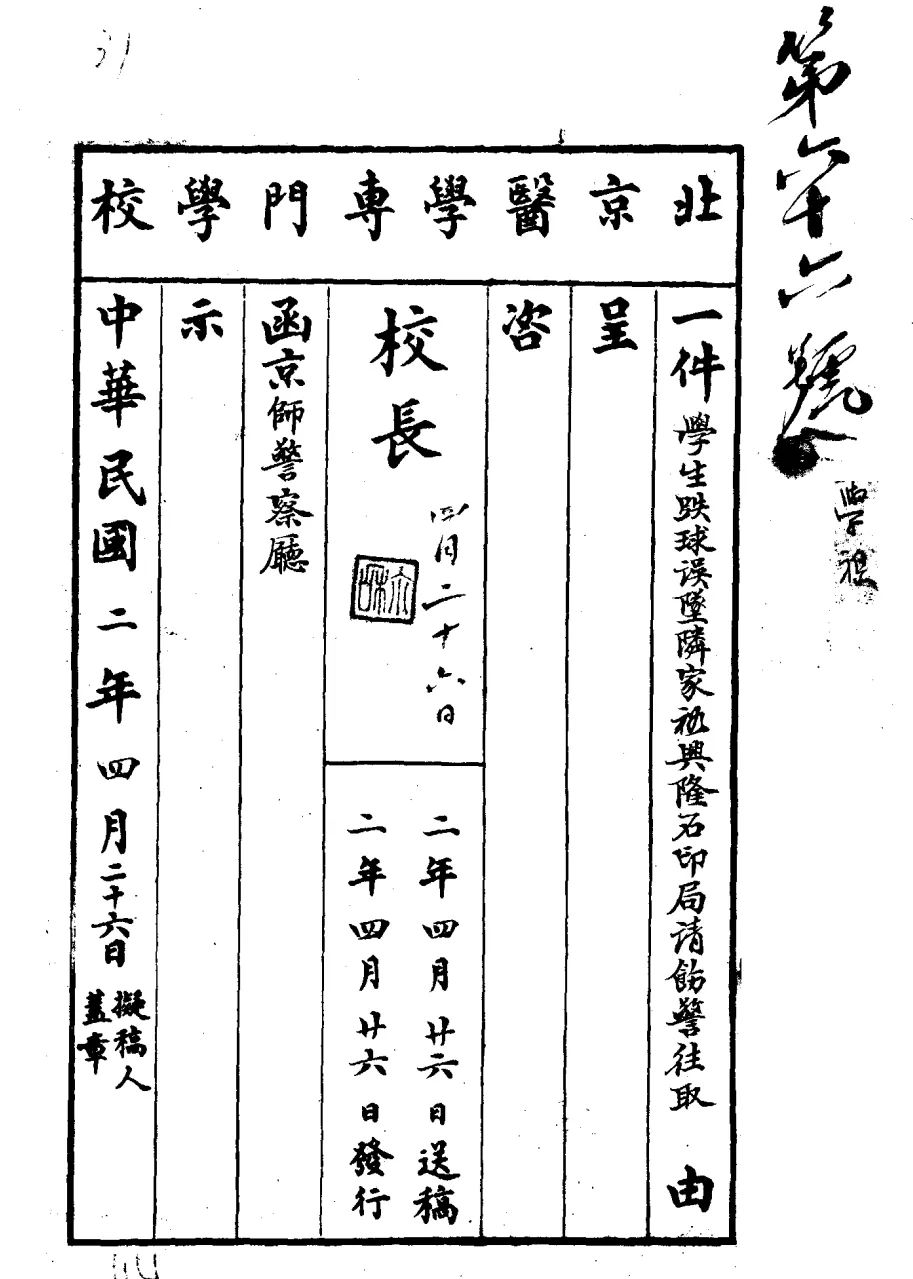 第六十六號
北京醫學專門學校
一件 學生跌球误墜隣家 興隆石印局请飭警往取 由
呈
咨
校長
四月二十六日
二年四月廿六日送稿
二年四月廿六日發行
函京師警察廳
示
中華民國二年四月二十六日
擬稿人
蓋章